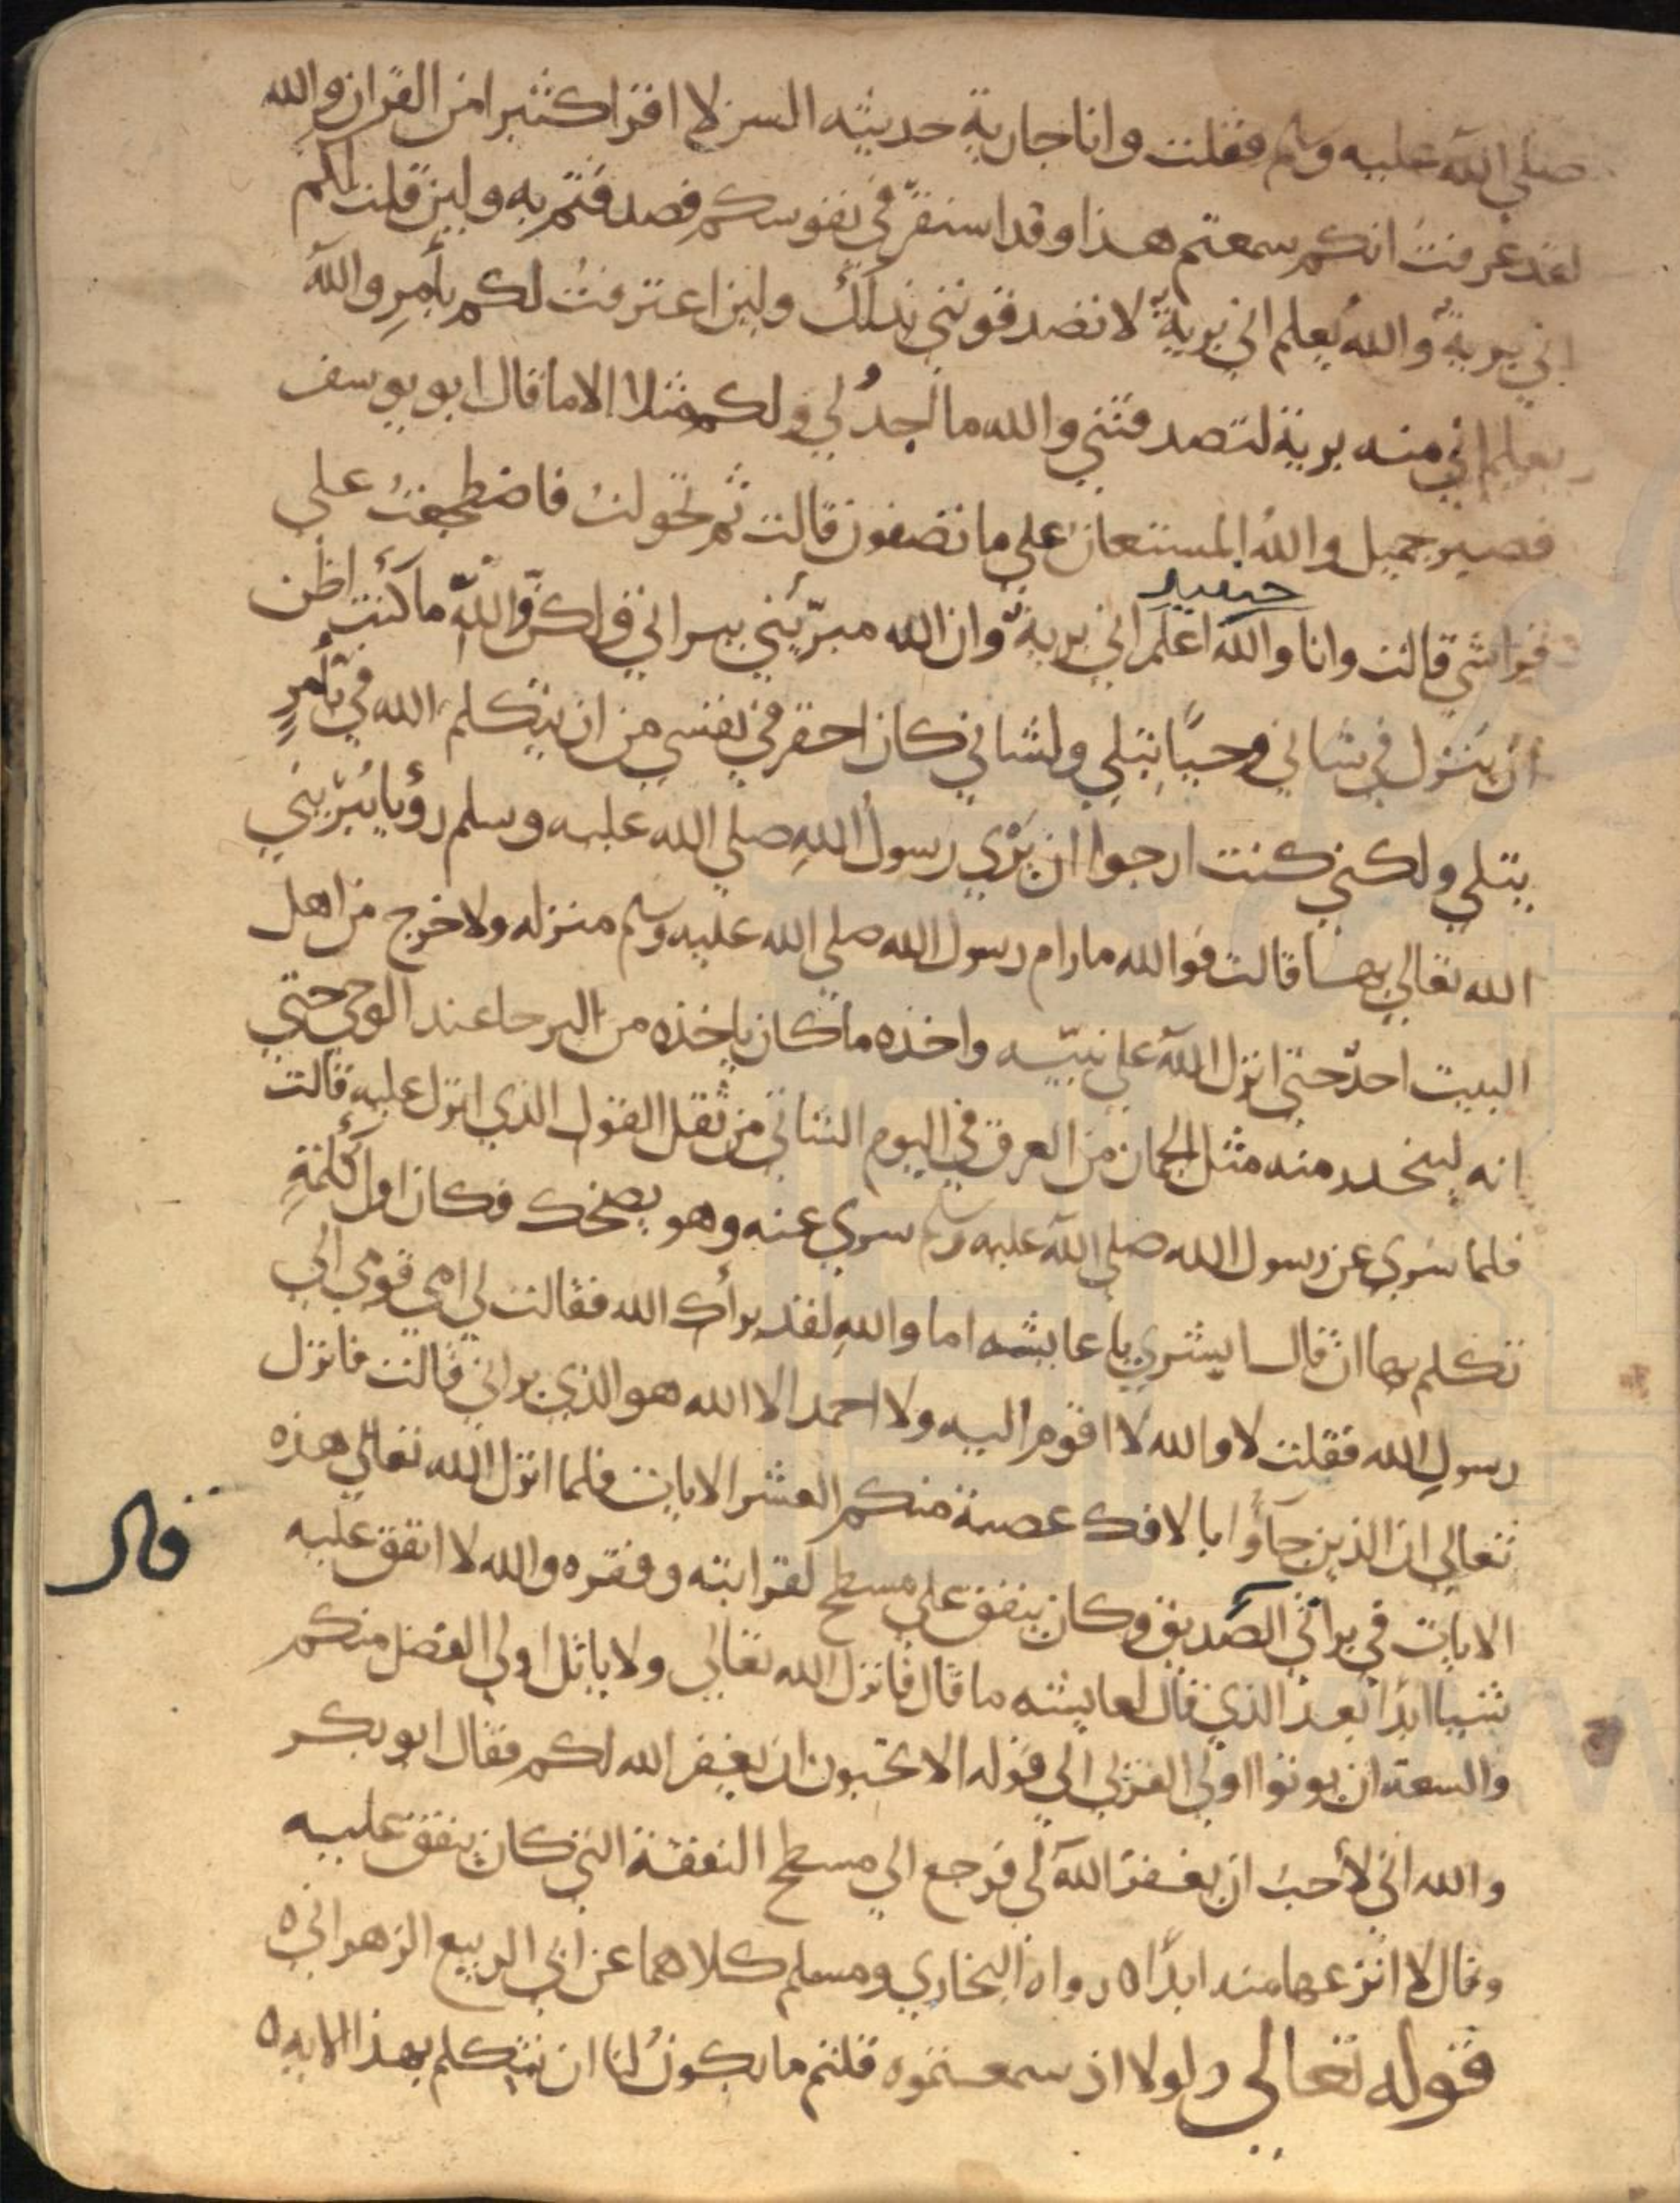 صلى الله عليه وسلم فقلت وانا جارية حديثه السن لا اقرا كثيرا من القران والله
لقد عرفت انكم سمعتم هذا وقد استقر في نفوسكم فصدقتم به ولين قلت لكم
اني برية والله يعلم اني برية لا تصدقونني بذلك ولين اعترفت لكم بأمر والله
يعلم اني منه برية لتصدقنني والله ما اجد لي ولكم مثلا الا ما قال ابو يوسف
فصبر جميل والله المستعان على ما تصفون قالت ثم تحولت فاضطجعت على
حينيد
فراشي قالت وانا والله اعلم اني برية وان الله مبرّيني ببراتي ولكن والله ما كنت اظن
ان ينزل في شاني وحيا يتلى ولشاني كان احقر في نفسي من ان يتكلم الله في بأمر
يتلى ولكني كنت ارجوا ان يرى رسول الله صلى الله عليه وسلم رؤيا يبريني
الله تعالى بها قالت فوالله ما رام رسول الله صلى الله عليه وسلم منزله ولا خرج من اهل
البيت احد حتى انزل الله على نبيه واخذه ما كان ياخذه من البرحا عند الوحي حتى
انه لينحدر منه مثل الجمان من العرق في اليوم الشاتي من ثقل القول الذي انزل عليه قالت
فلما سري عن رسول الله صلى الله عليه وسلم سري عنه وهو يضحك فكان اول كلمة
تكلم بها ان قال ابشري يا عايشه اما والله لقد برأك الله فقالت لي امي قومي الى
رسول الله فقلت لا والله لا اقوم اليه ولا احمد الا الله هو الذي براني قالت فانزل
تعالى ان الذين جاؤا بالافك عصبة منكم العشر الايات فلما انزل الله تعالى هذه
قال
الايات في براتي الصديق وكان ينفق على مسطح لقرابته وفقره والله لا انفق عليه
شيا ابدا بعد الذي قال لعايشه ما قال فانزل الله تعالى ولا ياتل اولي الفضل منكم
والسعة ان يوتوا اولي القربى الى قوله الا تحبون ان يغفر الله لكم فقال ابو بكر
والله اني لأحب ان يغفر الله لي فرجع الى مسطح النفقة التي كان ينفق عليه
وقال لا انزعها منه ابدا ه رواه البخاري ومسلم كلاهما عن ابي الربيع الزهراني ه
قوله تعالى ولولا اذ سمعتموه قلتم ما يكون لنا ان نتكلم بهذا الايه ه